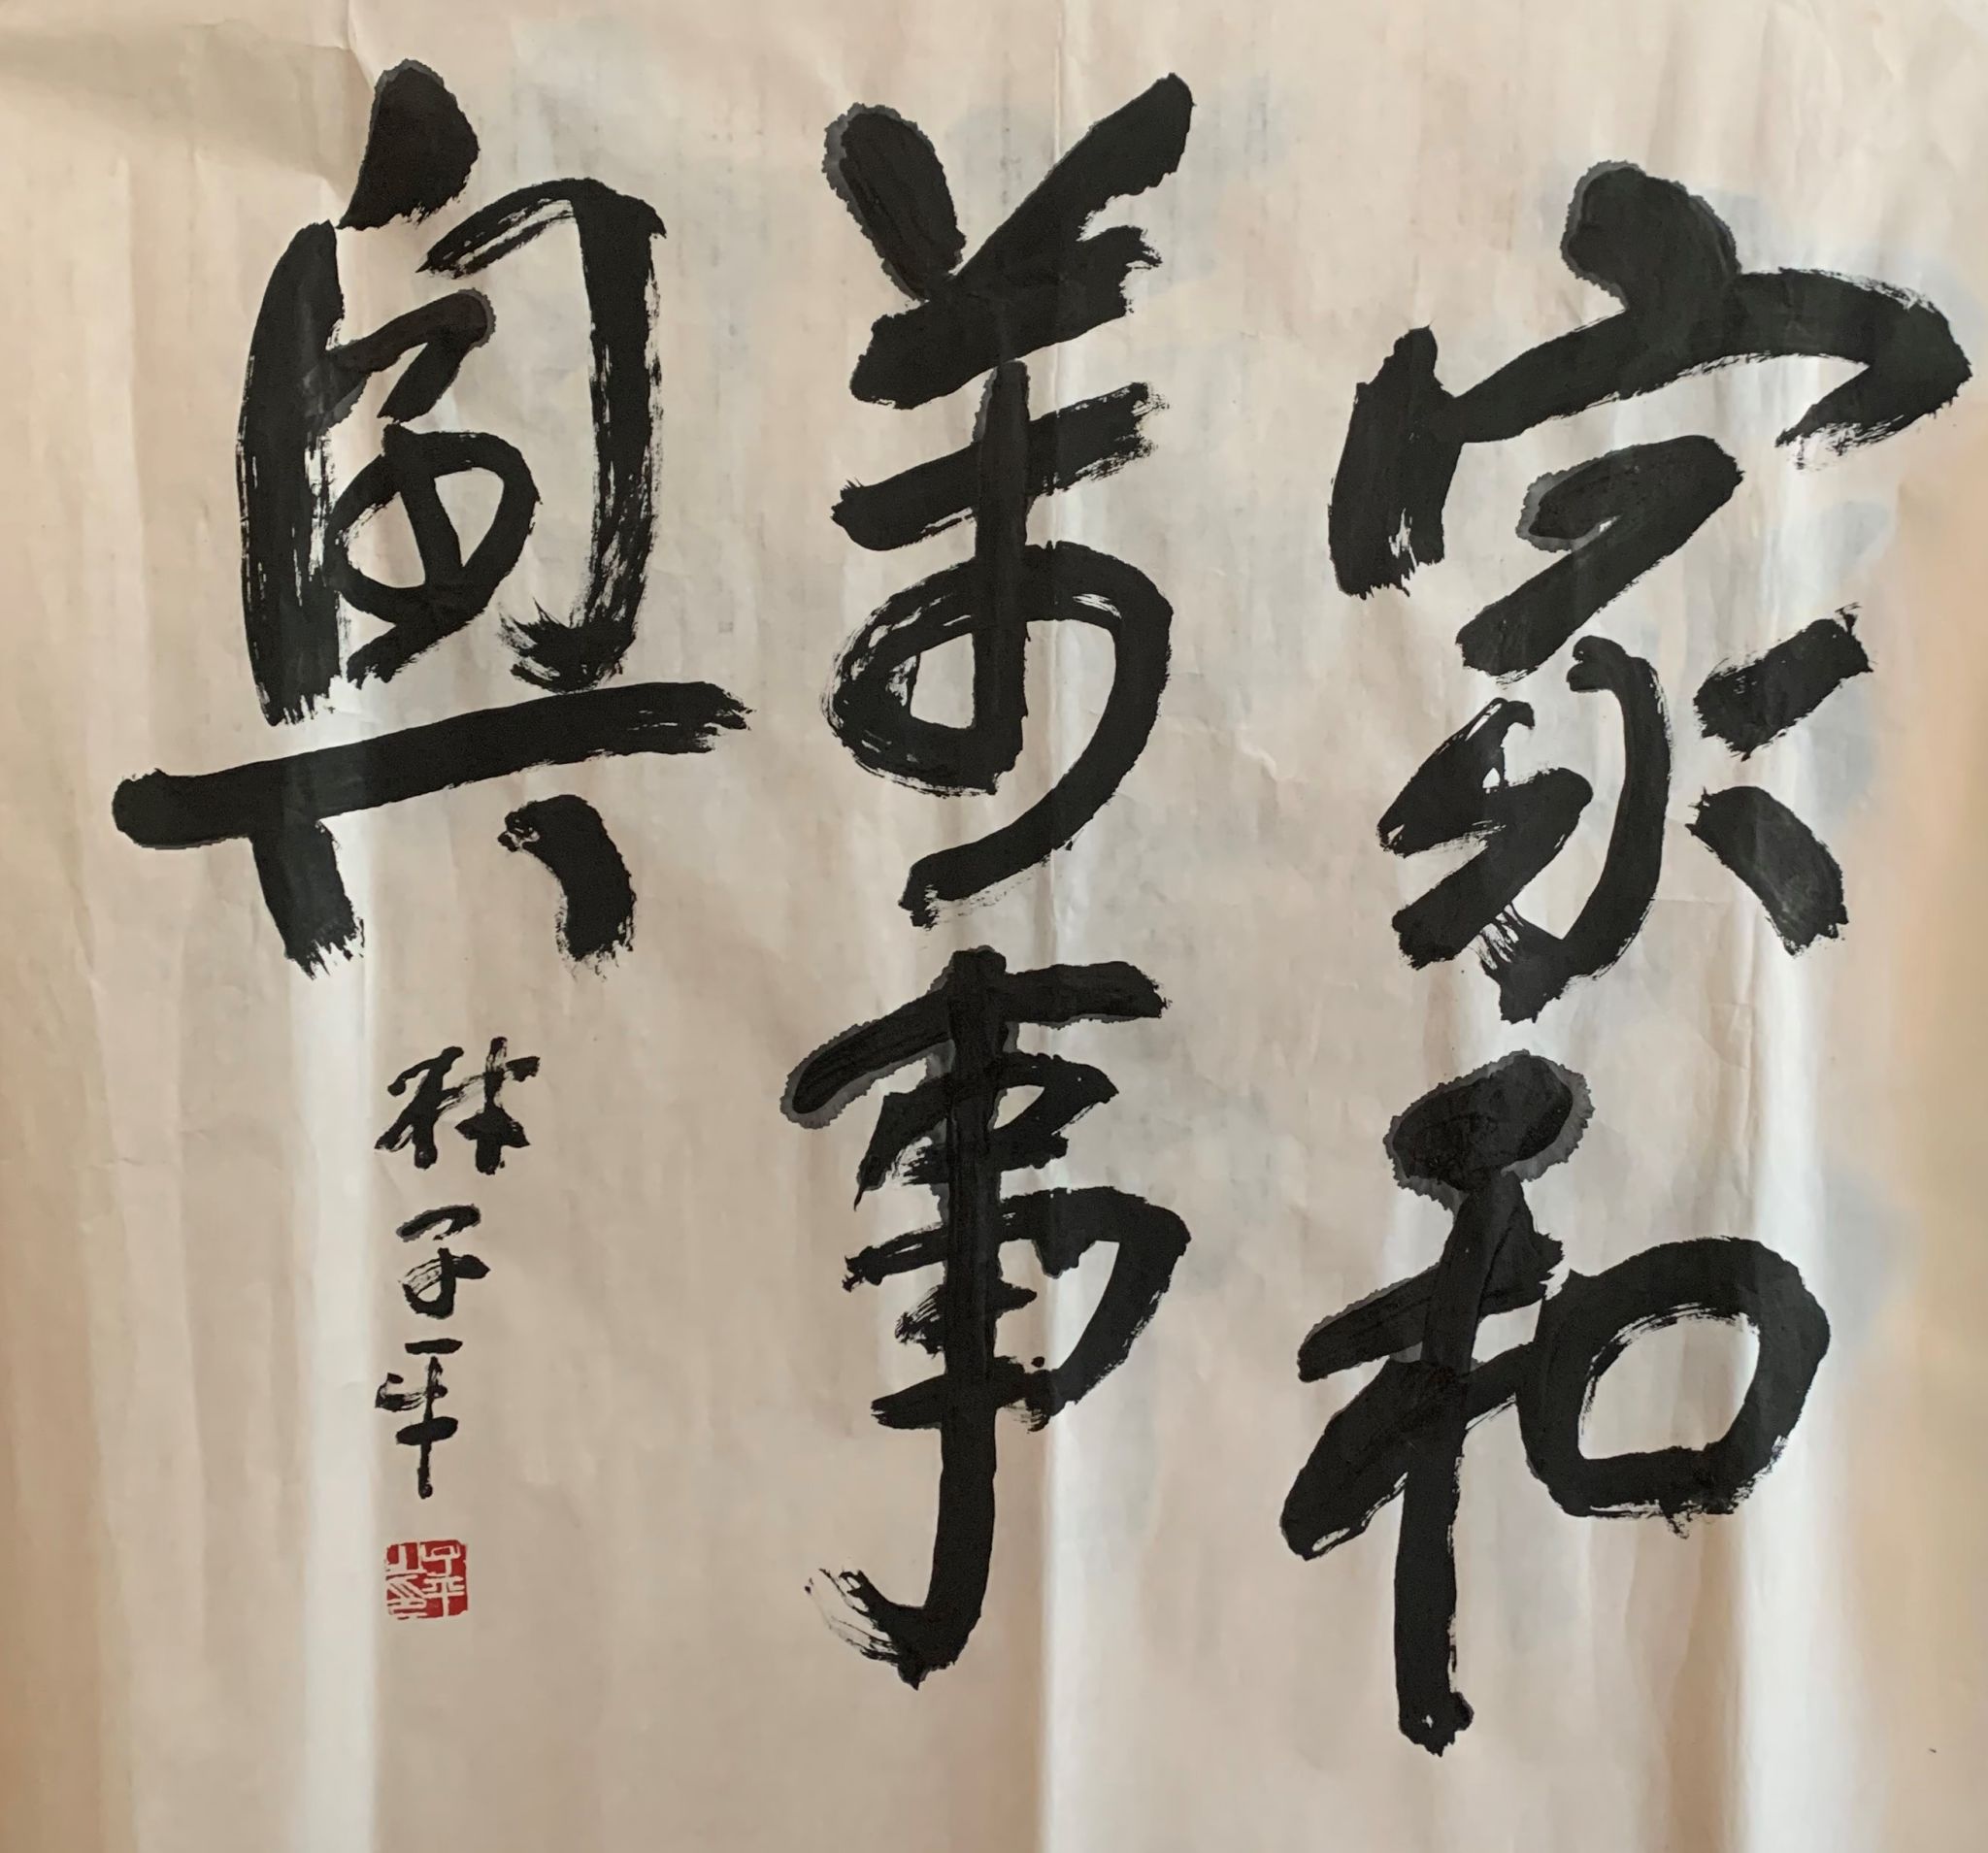 家和
萬事
興
林子平
子平
之印